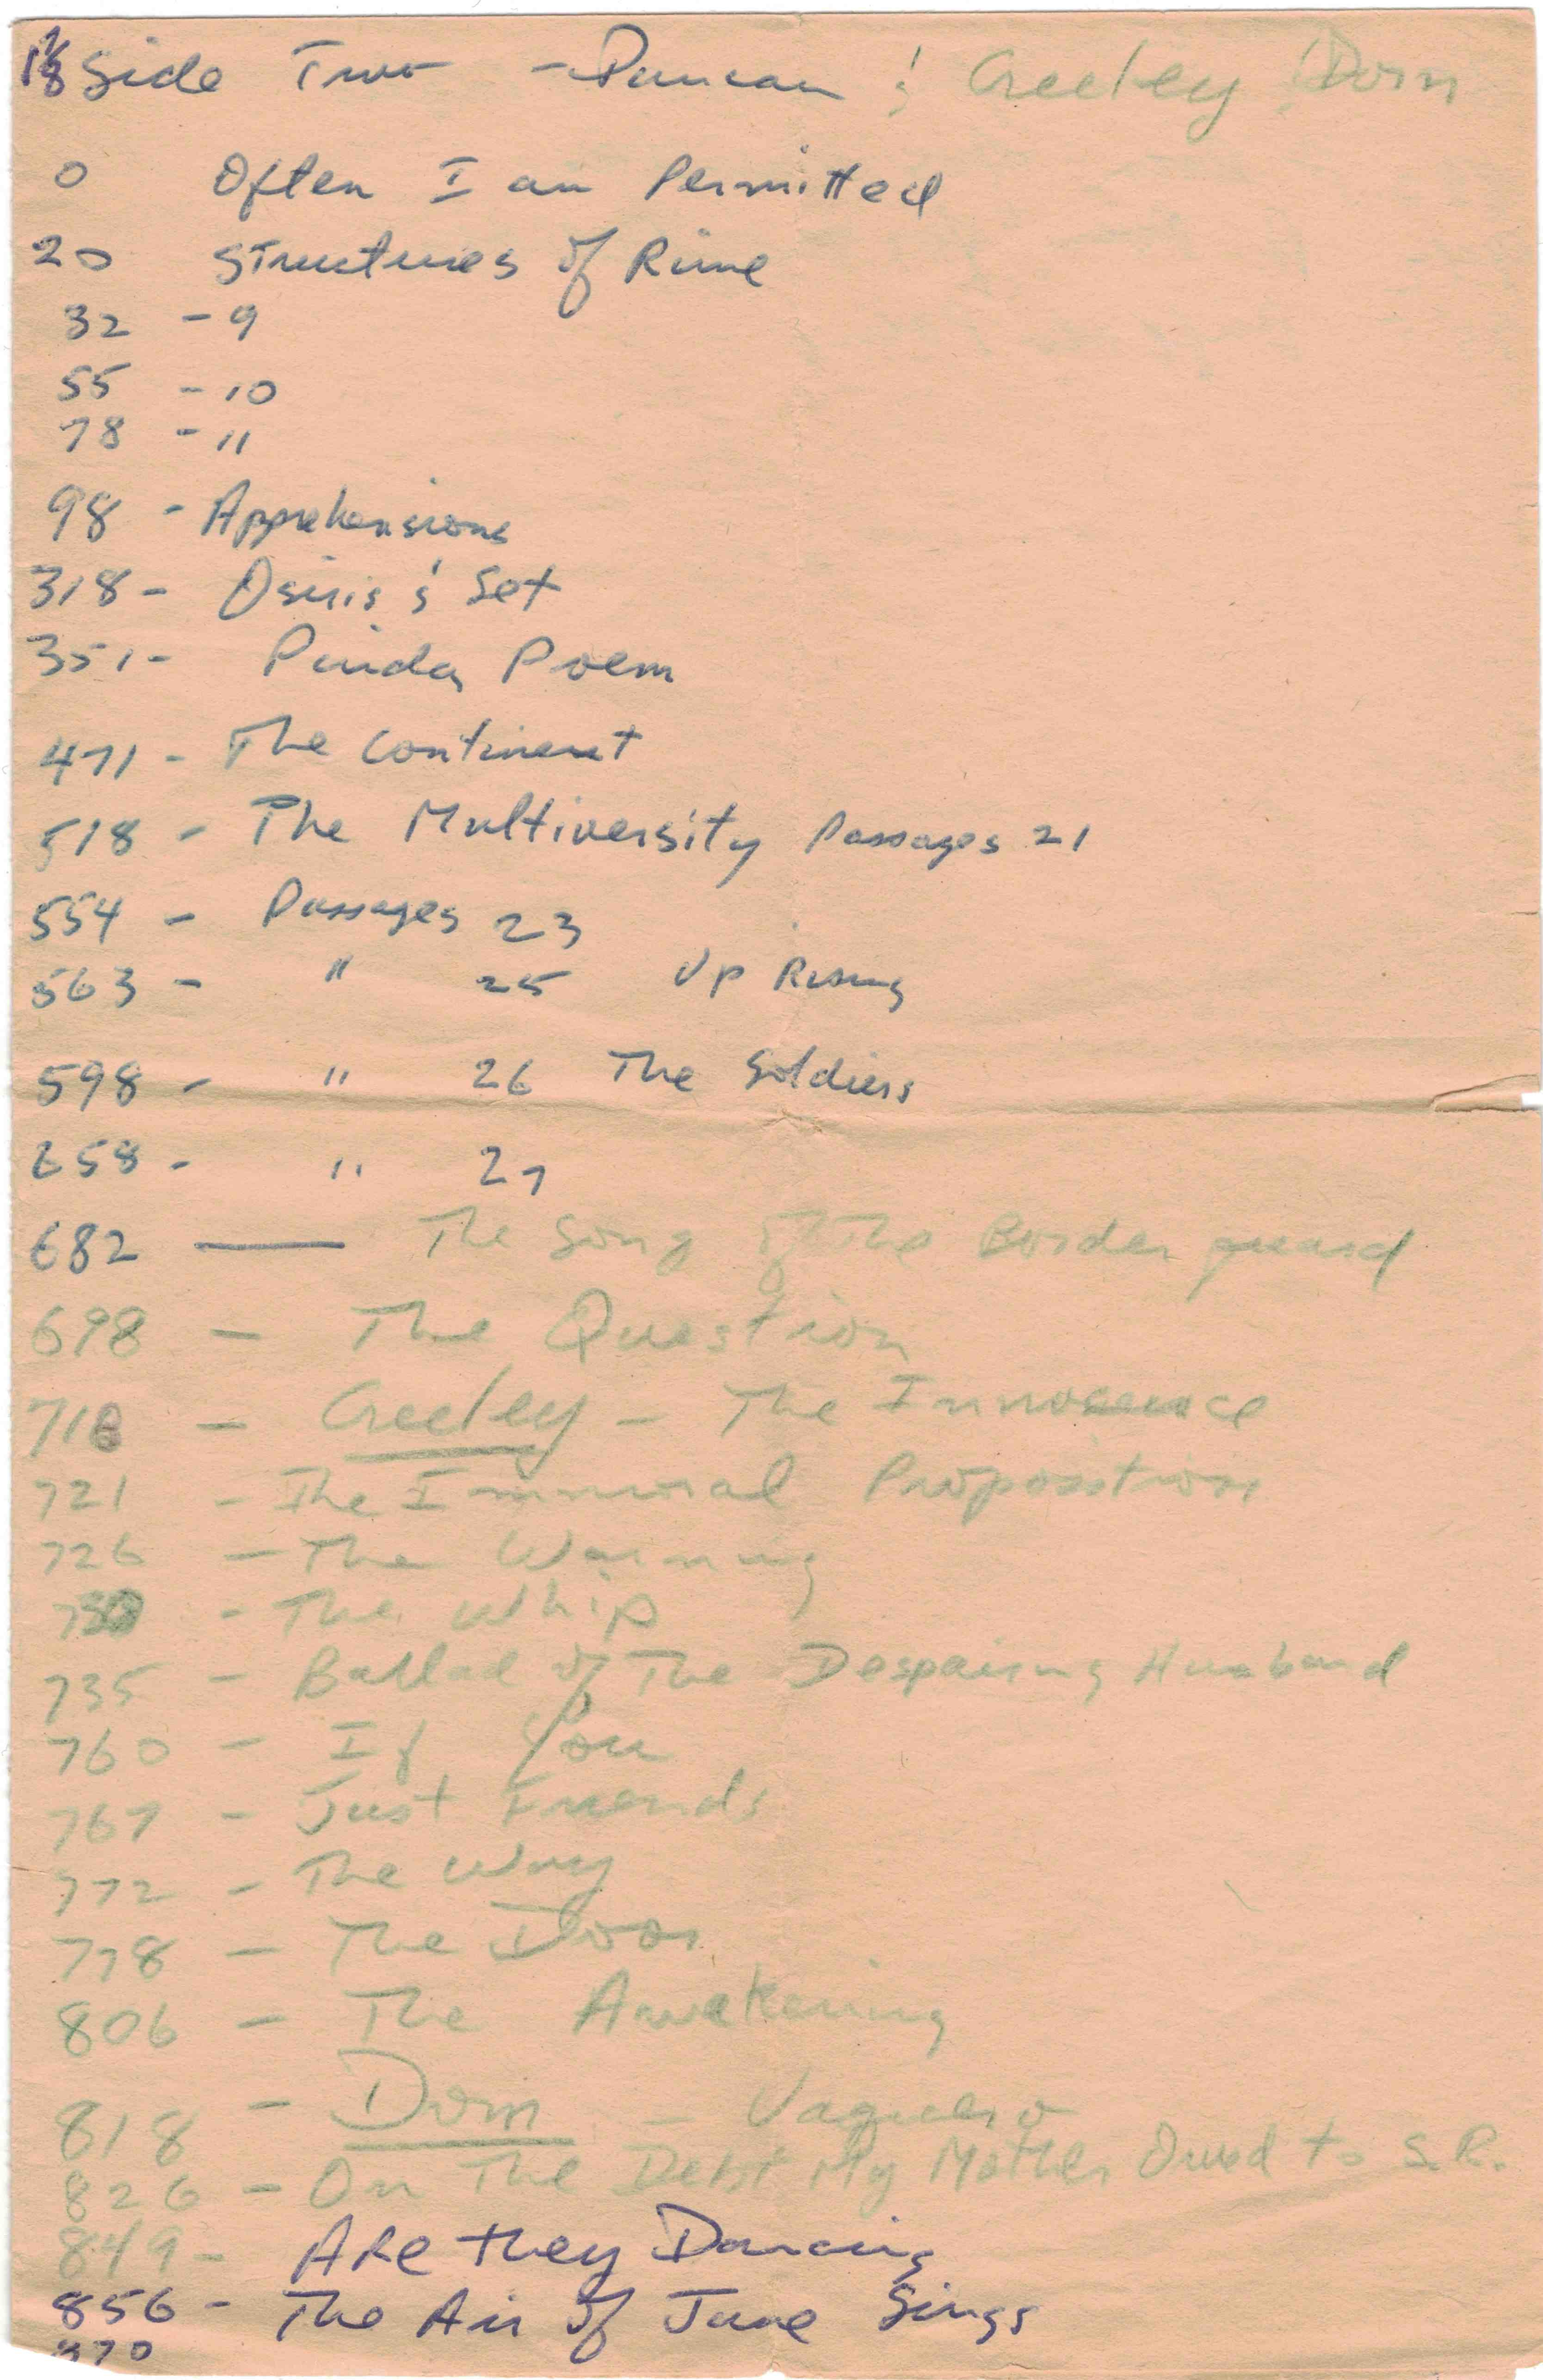 Side Two - Duncan ; Creeley Dorn
0 Often I am Permitted
20 Structures of Rime
32 - 9
55 - 10
78 - 11
98 - Apprehensions
318 - Osiris's Set
351 - Pindar Poem
471 - The Continent
518 - The Multiversity Passages 21
554 - Passages 23
563 - " 25 Up Rising
598 - " 26 The Soldiers
658 - " 27
682 — The Song of The Border guard
698 - The Question
718 - Creeley - The Innocence
721 - The Immoral Proposition
726 - The Warning
730 - The Whip
735 - Ballad of The Despairing Husband
760 - If You
767 - Just Friends
772 - The Way
778 - The Door
806 - The Awakening
818 - Dorn - Vaquero
826 - On The Debt My Mother Owed to S.R.
849 - Are they Dancing
856 - The Air of June Sings
870